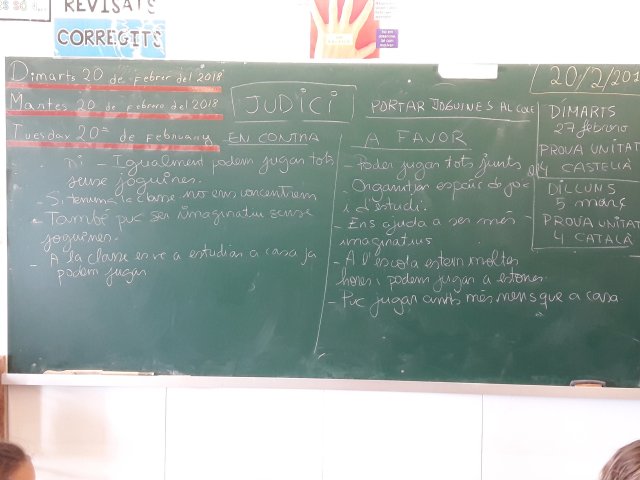 REVISATS
CORREGITS
Dimarts 20 de Febrer del 2018
Martes 20 de Febrero del 2018
Tuesday 20th de February
JUDICI
PORTAR JOGUINES AL COLE
20/2/201
DIMARTS
27 febrero
PROVA UNITAT
4 CASTELLÀ
DILLUNS
5 març
PROVA UNITAT
4 CATALÀ
EN CONTRA
Igualment podem jugar tots
sense joguines.
- Si tenim a la classe no ens concentrem
- També puc ser imaginatiu sense
joguines.
- A la classe es ve a estudiar a casa ja
podem jugar
A FAVOR
- Poder jugar tots junts
- Organitzar espais de joc
i d'estudi.
- Ens ajuda a ser més
imaginatius
- A l'escola estem moltes
hores i podem jugar a estones
- Puc jugar amb més nens que a casa